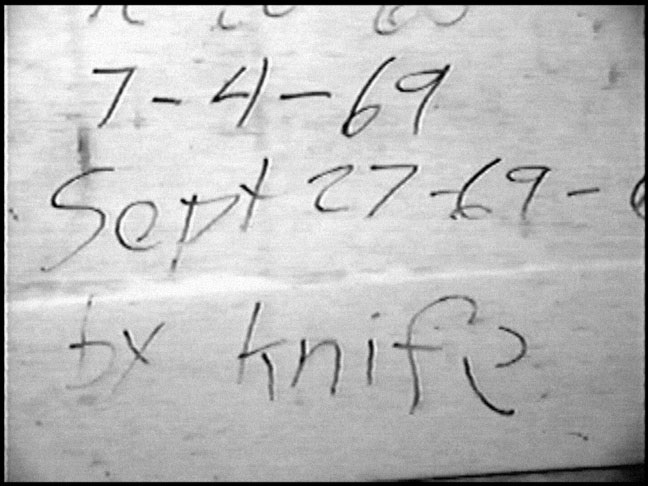 7-4-69
Sept 27-69-6
by knife